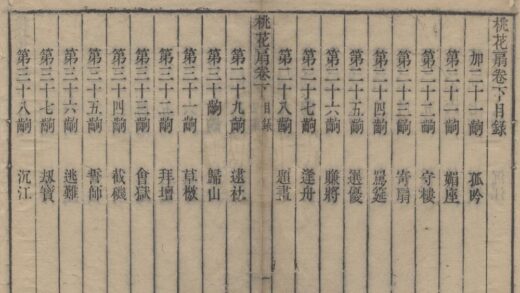 桃花扇卷下目錄
加二十一齣 孤吟
第二十一齣 媚座
第二十二齣 守樓
第二十三齣 寄扇
第二十四齣 罵筵
第二十五齣 選優
第二十六齣 賺將
第二十七齣 逢舟
第二十八齣 題畫
桃花扇卷下 目錄 一
第二十九齣 逮社
第三十齣 歸山
第三十一齣 草檄
第三十二齣 拜壇
第三十三齣 會獄
第三十四齣 截磯
第三十五齣 誓師
第三十六齣 逃難
第三十七齣 劫寶
第三十八齣 沉江